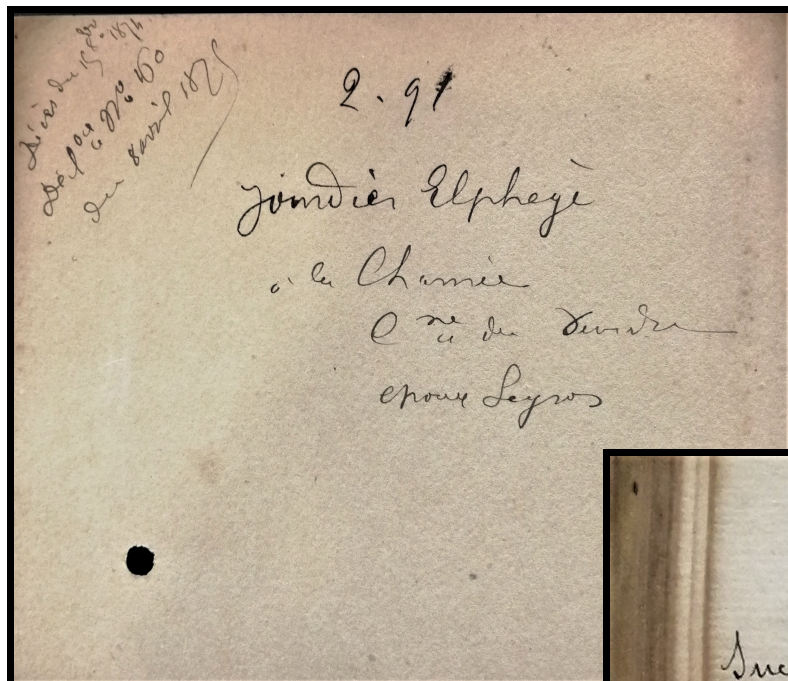 Décès du 15 8bre 1874
Décl on N° 160
du 8 avril 1875
2.91
Jourdier Elphegè
à la Charnée
Cne du
epoux Seyros
Suc